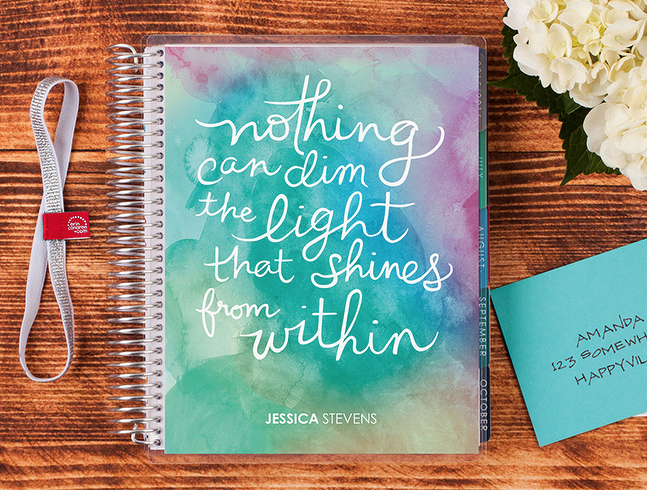 nothing
can dim
the light
that shines
from within
JESSICA STEVENS
JULY
AUGUST
SEPTEMBER
OCTOBER
erin
condren
.com
AMANDA
123 SOMEWH
HAPPYVIL